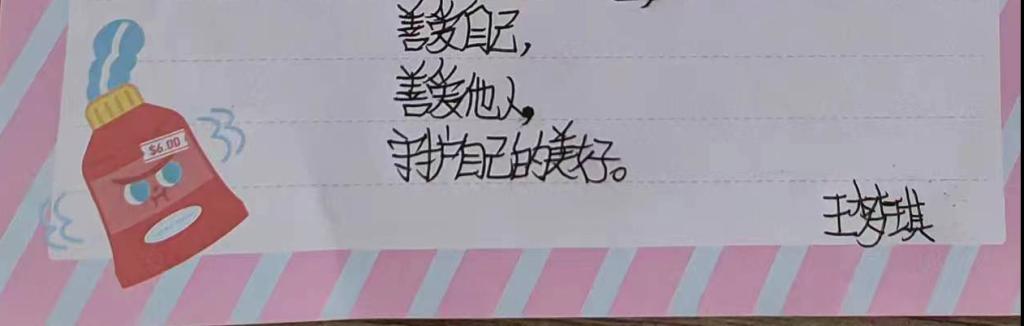 善爱自己,
善爱他人,
守护自己的美好。
王梦琪
$6.00